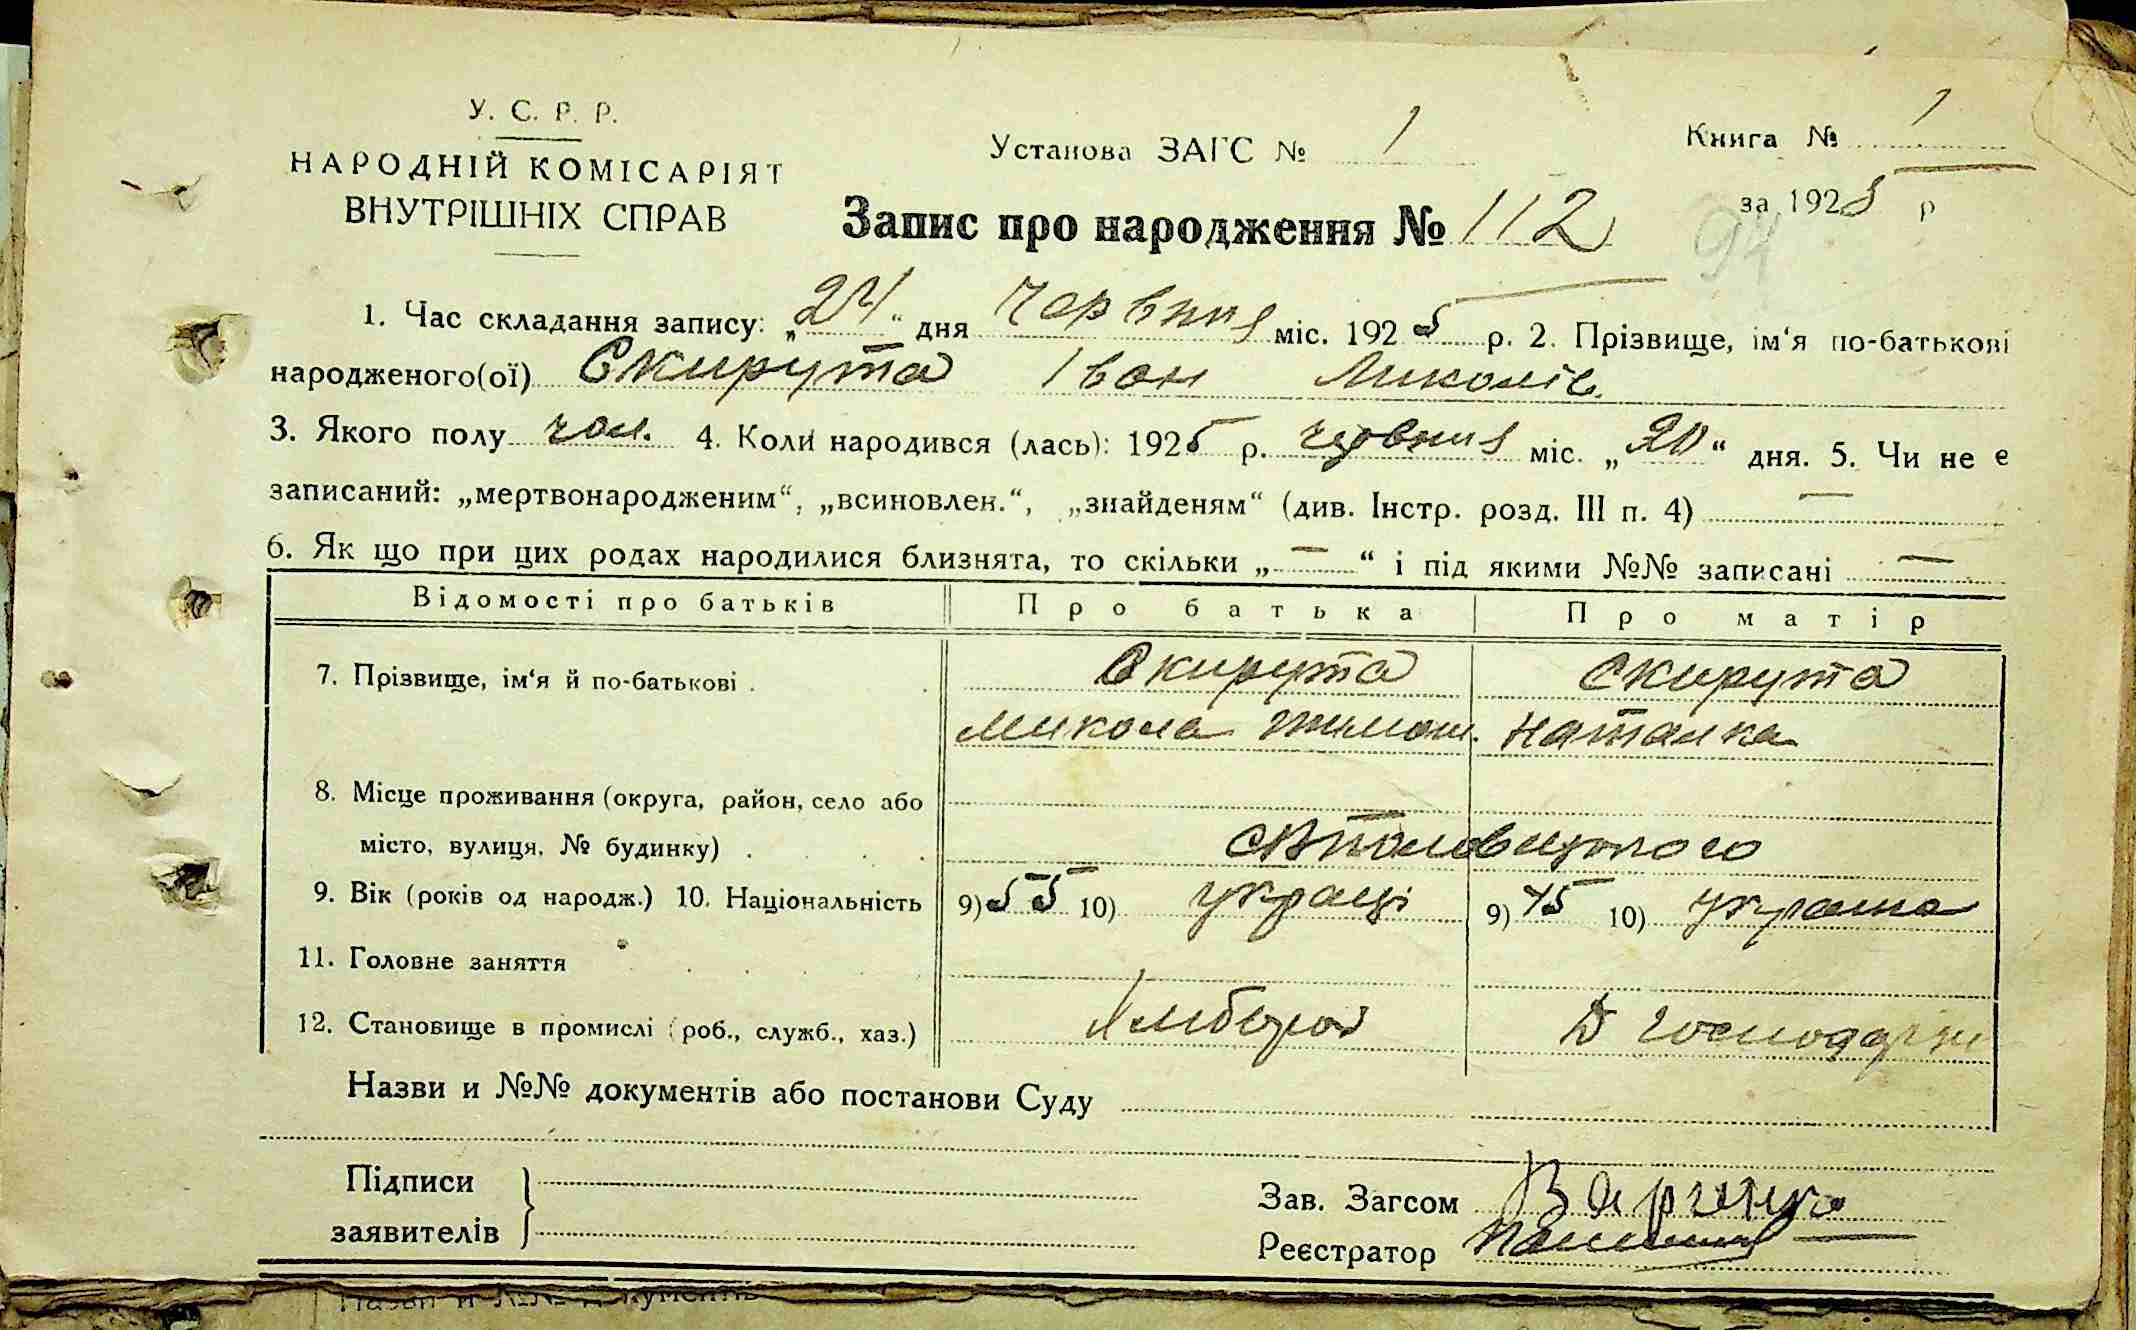 У. С. Р. Р.
НАРОДНІЙ КОМІСАРІЯТ
ВНУТРІШНІХ СПРАВ
Установа ЗАГС № 1
Книга № 1
за 1925 р
Запис про народження № 112
94
1. Час складання запису: „24“ дня Червння міс. 1925 р. 2. Прізвище, ім‘я по-батькові
народженого(ої) Скирута Іван Миколів.
3. Якого полу чол. 4. Коли народився (лась): 1925 р. червння міс. „20“ дня. 5. Чи не є
записаний: „мертвонародженим“, „всиновлен.“, „знайденям“ (див. Інстр. розд. III п. 4) —
6. Як що при цих родах народилися близнята, то скільки „—“ і під якими №№ записані —
Відомості про батьків Про батька Про матір
7. Прізвище, ім‘я й по-батькові . Скирута Скирута
Микола Тимош. Наталка
8. Місце проживання (округа, район, село або
місто, вулиця, № будинку) .
9. Вік (років од народж.) 10. Національність 9) 55 10) украці 9) 45 10) украіна
11. Головне заняття
12. Становище в промислі (роб., служб., хаз.) Хлібороб Д господарки
Назви и №№ документів або постанови Суду
Підписи
заявителів
Зав. Загсом
Реєстратор